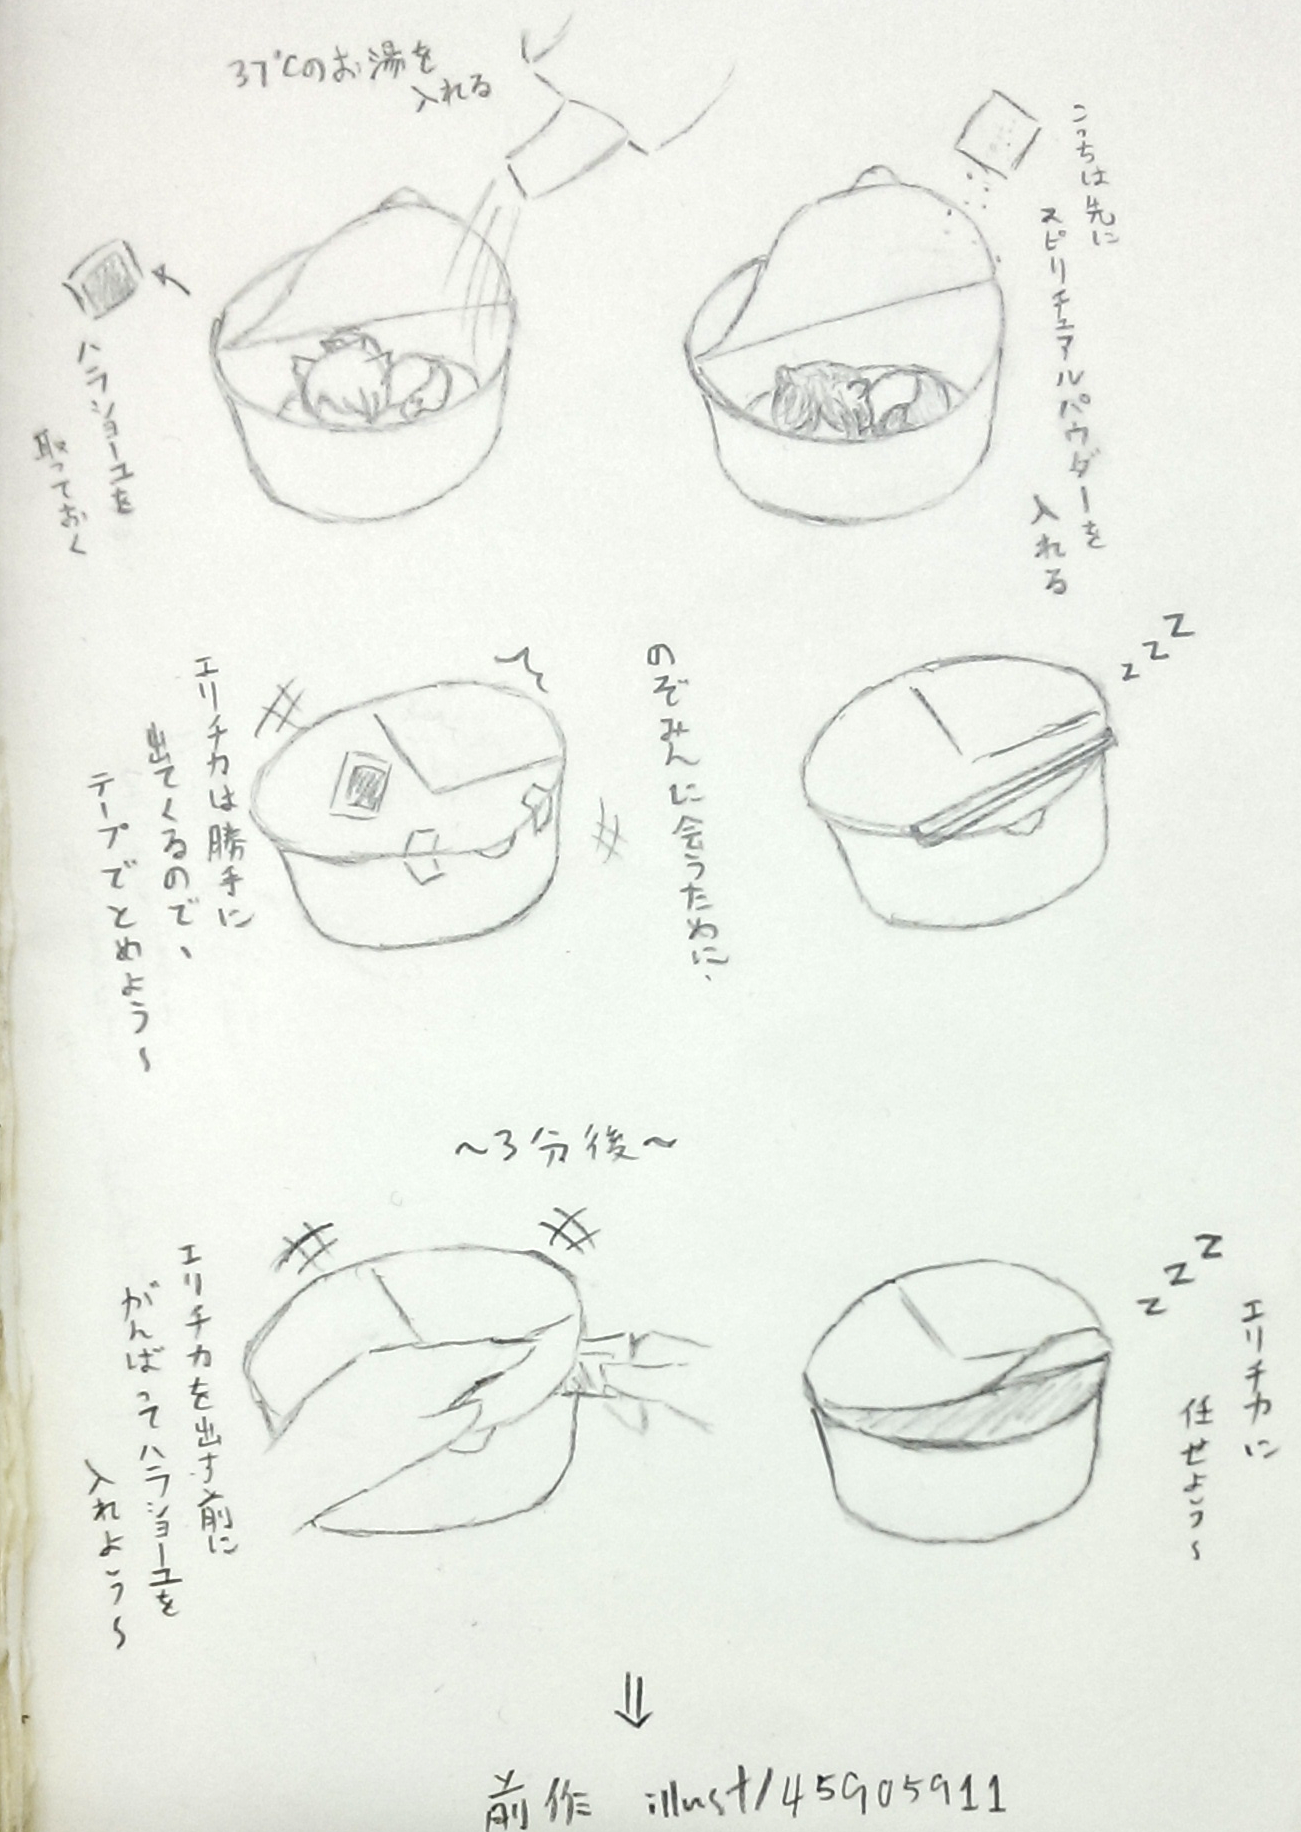 37℃のお湯を
入れる
ハラショーユを
取っておく
こっちは先に
スピリチュアルパウダーを
入れる
エリチカは勝手に
出てくるので、
テープでとめよう～
のぞみんに会うために、
zzz
～3分後～
エリチカを出す前に
がんばってハラショーユを
入れよう～
zzz
エリチカに
任せよう～
前作 illust/45905911